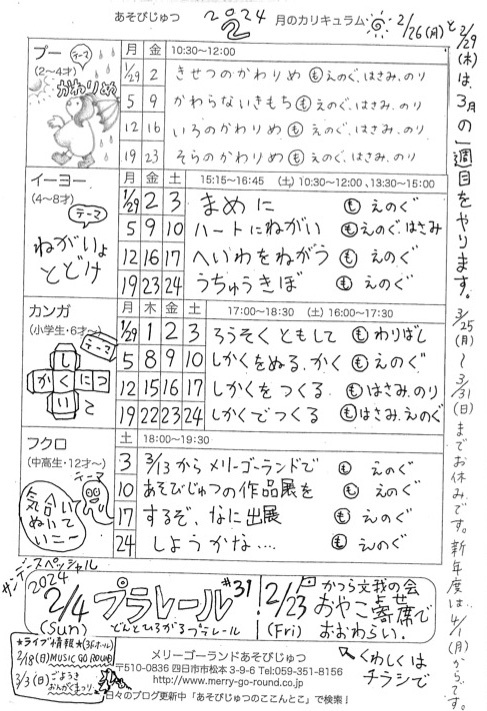 あそびじゅつ 2024 2 月のカリキュラム
2/26(月)と2/29(木)は、3月の1週目をやります。3/25(月)~3/31(日)までお休みです。新年度は、4/1(月)からです。
プー
(2~4才)
テーマ
かわりめ
月 金 10:30~12:00
1/29 2 きせつのかわりめ も えのぐ、はさみ、のり
5 9 かわらないきもち も えのぐ、はさみ、のり
12 16 いろのかわりめ も えのぐ、はさみ、のり
19 23 そらのかわりめ も えのぐ、はさみ、のり
イーヨー
(4~8才)
テーマ
ねがいよ
とどけ
月 金 土 15:15~16:45 (土)10:30~12:00、13:30~15:00
1/29 2 3 まめに も えのぐ
5 9 10 ハートにねがい も えのぐ、はさみ
12 16 17 へいわをねがう も えのぐ
19 23 24 うちゅうきぼ も えのぐ
カンガ
(小学生・6才~)
テーマ
し
かくにつ
い
て
月 木 金 土 17:00~18:30 (土)16:00~17:30
1/29 1 2 3 ろうそくともして も わりばし
5 8 9 10 しかくをぬる、かく も えのぐ
12 15 16 17 しかくをつくる も はさみ、のり
19 22 23 24 しかくでつくる も はさみ、えのぐ
フクロ
(中高生・12才~)
テーマ
気合い
ぬいて
いこー
土 18:00~19:30
3 3/13からメリーゴーランドで も えのぐ
10 あそびじゅつの作品展を も えのぐ
17 するぞ、なに出展 も えのぐ
24 しようかな… も えのぐ
サンデースペシャル
2024
2/4 プラレール #31
(Sun) どんとひろがるプラレール
2/23 かつら文我の会
(Fri) おやこ寄席で
おおわらい。
くわしくは
チラシで
★ライブ情報★(3Fホール)
2/18(日)MUSIC GO ROUND
3/3(日)ごようき
おんがくまつり
メリーゴーランドあそびじゅつ
〒510-0836 四日市市松本 3-9-6 Tel:059-351-8156
http://www.merry-go-round.co.jp/
日々のブログ更新中「あそびじゅつのここんとこ」で検索!